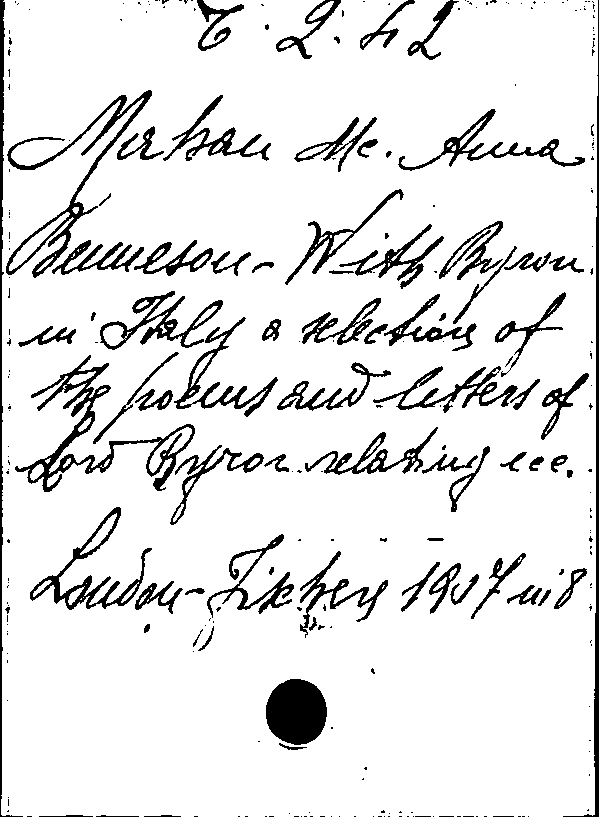 6. 2. h 2
Mirhan Mc. Anna
Benneson - With Byron
in Italy a selection of
the poems and letters of
Lord Byron relating ecc.
London - Fischery 1907 in 8